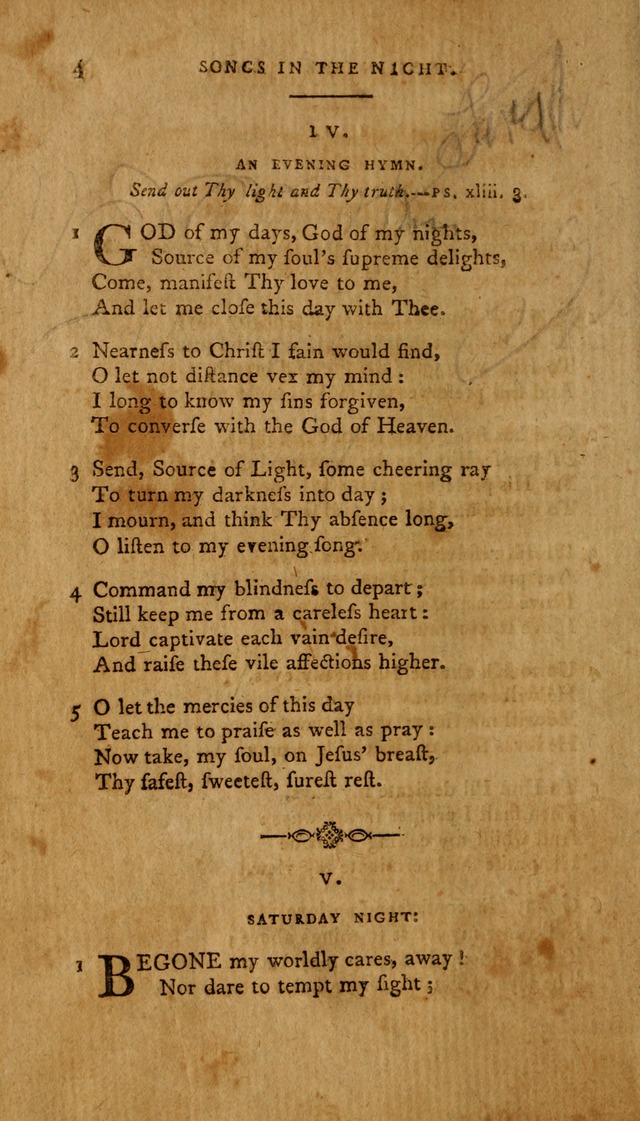 4 SONGS IN THE NIGHT.
IV.
AN EVENING HYMN.
Send out Thy light and Thy truth.—PS. xliii. 3.
1 GOD of my days, God of my nights,
Source of my ſoul's ſupreme delights,
Come, manifeſt Thy love to me,
And let me cloſe this day with Thee.
2 Nearneſs to Chriſt I fain would find,
O let not diſtance vex my mind:
I long to know my ſins forgiven,
To converſe with the God of Heaven.
3 Send, Source of Light, ſome cheering ray
To turn my darkneſs into day;
I mourn, and think Thy abſence long,
O liſten to my evening ſong.
4 Command my blindneſs to depart;
Still keep me from a careleſs heart:
Lord captivate each vain deſire,
And raiſe theſe vile affections higher.
5 O let the mercies of this day
Teach me to praiſe as well as pray:
Now take, my ſoul, on Jeſus' breaſt,
Thy ſafeſt, ſweeteſt, ſureſt reſt.
V.
SATURDAY NIGHT:
1 BEGONE my worldly cares, away!
Nor dare to tempt my ſight;